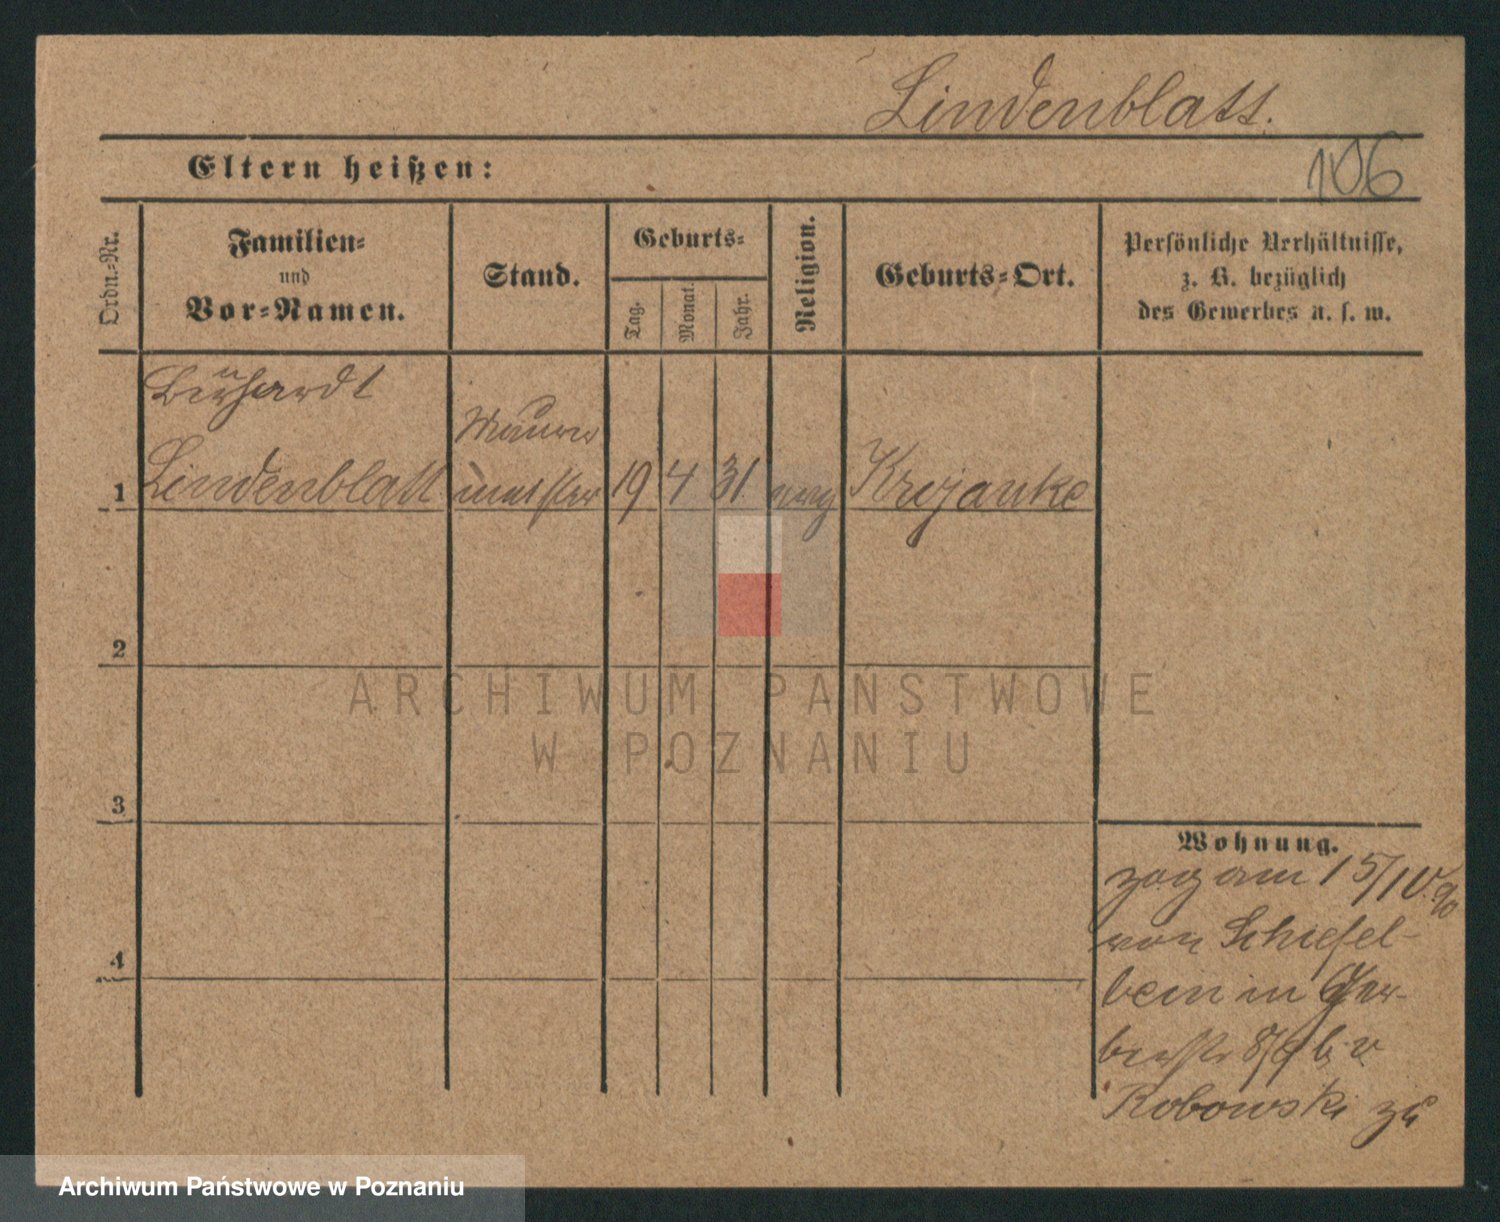 Lindenblatt.
Eltern heißen:
106
Ordn.-Nr.
Familien-
und
Vor-Namen.
Stand.
Geburts-
Tag.
Monat.
Jahr.
Religion.
Geburts-Ort.
Persönliche Verhältnisse,
z. B. bezüglich
des Gewerbes u. s. w.
Bernhardt
Maurer
1 Lindenblatt meister 19 4 31 evg Krojanke
2
ARCHIWUM PAŃSTWOWE
W POZNANIU
3
Wohnung.
zog am 15/10. 90
von Schiefel-
bein in Ger-
berstr 8/9 b. v
Robowski zu
4
Archiwum Państwowe w Poznaniu